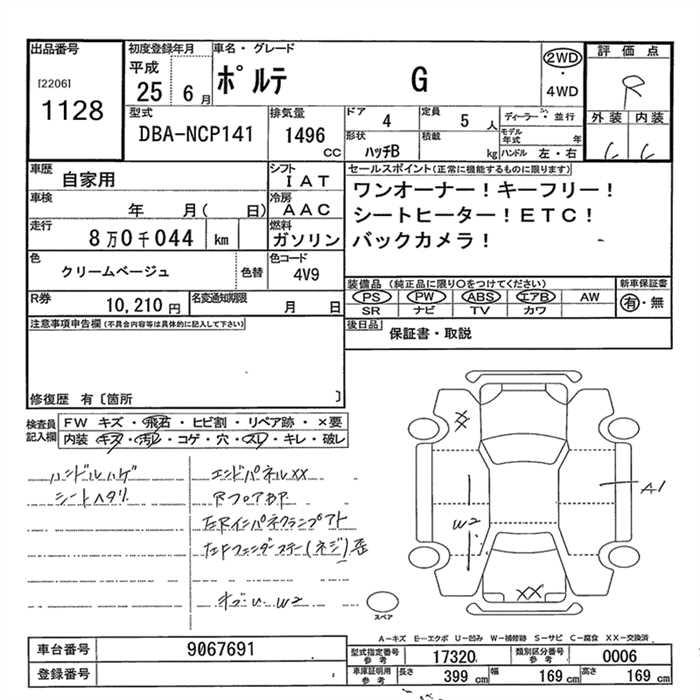 出品番号
[2206]
1128
初度登録年月
平成
25 6月
車名・グレード
ポルテ G
2WD
・
4WD
評価点
R
外装 内装
型式
DBA-NCP141
排気量
1496
CC
ドア
4
定員
5 人
ディーラー・並行
モデル
年式 年
形状
ハッチB
積載
kg
ハンドル 左・右
車歴
自家用
シフト
IAT
車検
年 月( 日)
冷房
AAC
走行
8万0千044 km
燃料
ガソリン
色
クリームベージュ
色替
色コード
4V9
R券
10,210 円
名変通知期限
月 日
セールスポイント(正常に機能するものに限ります)
ワンオーナー!キーフリー!
シートヒーター!ETC!
バックカメラ!
装備品(純正品に限り○をつけてください)
PS PW ABS エアB AW
SR ナビ TV カワ
新車保証書
有・無
後日品
保証書・取説
注意事項申告欄(不具合内容等は具体的に記入して下さい)
修復歴 有〔箇所 〕
検査員
記入欄
FW キズ・飛石・ヒビ割・リペア跡・×要
内装 キズ・汚レ・コゲ・穴・スレ・キレ・破レ
ハンドルハゲ
シートヘタリ
エンドパネルXX
RフロアBP
左Rインパネクランプアト
左Fフェンダーステー(ネジ)歪
W2
XX
W2
A1
XX
スペア
A-キズ E-エクボ U-凹み W-補修跡 S-サビ C-腐食 XX-交換済
車台番号
9067691
登録番号
型式指定番号
参考
17320
類別区分番号
参考
0006
車庫証明用
参考
長さ
399 cm
幅
169 cm
高さ
169 cm